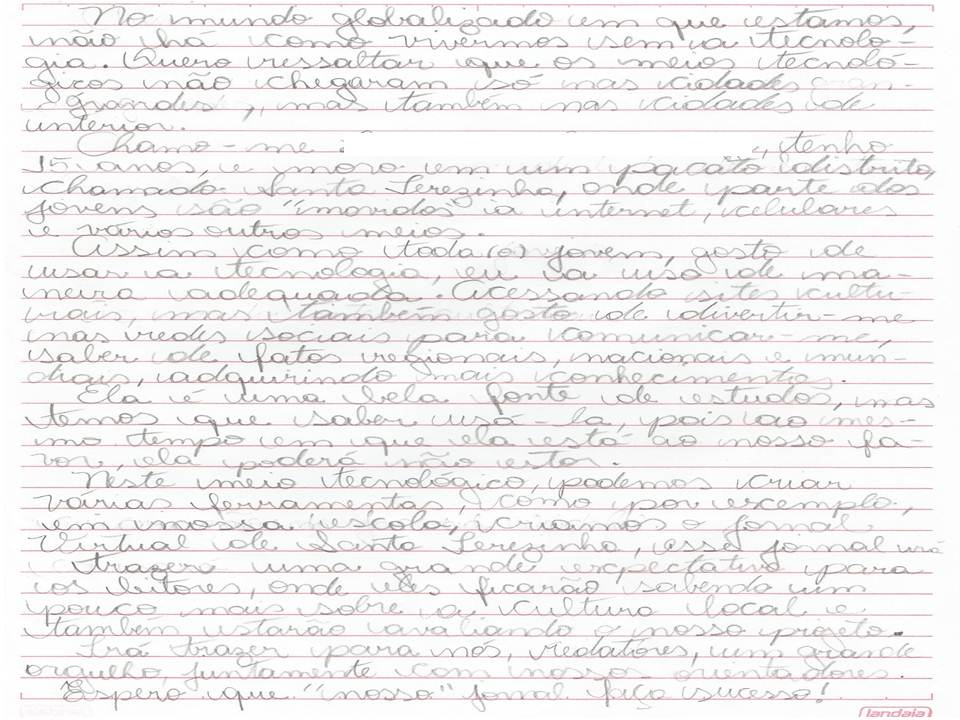 No mundo globalizado em que estamos,
não há como vivermos sem a tecnolo-
gia. Quero ressaltar que os meios tecnoló-
gicos não chegaram só nas cidades gran-
grandes, mas também nas cidades de
interior.
Chamo-me : , tenho
15 anos, e moro em um pacato distrito,
chamado Santa Terezinha, onde parte dos
jovens são "movidos" a internet, celulares
e vários outros meios.
Assim como toda(o) jovem, gosto de
usar a tecnologia, eu a uso de ma-
neira adequada. Acessando sites cultu-
rais, mas também gosto de divertir-me
nas redes sociais para comunicar-me,
saber de fatos regionais, nacionais e mun-
diais, adquirindo mais conhecimentos.
Ela é uma bela fonte de estudos, mas
temos que saber usá-la, pois ao mes-
mo tempo em que ela está ao nosso fa-
vor, ela poderá não estar.
Neste meio tecnológico, podemos criar
várias ferramentas, como por exemplo,
em nossa escola, criamos o jornal
Virtual de Santa Terezinha, esse jornal irá
trazer uma grande expectativa para
os leitores, onde eles ficarão sabendo um
pouco mais sobre a cultura local e
também estarão avaliando o nosso projeto.
Irá trazer para nós, redatores, um grande
orgulho, juntamente com nossos orientadores.
Espero que "nosso" jornal faça sucesso!
landaia